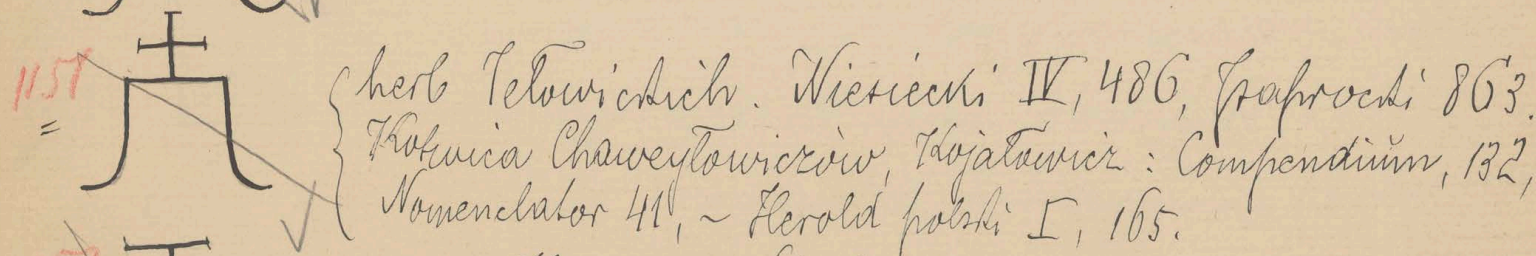 1151
herb Jełowickich. Niesiecki IV, 486, Paprocki 863.
=
Kotwica Chaweyłowiczów, Kojałowicz: Compendium, 132,
Nomenclator 41, ~ Herold polski I, 165.